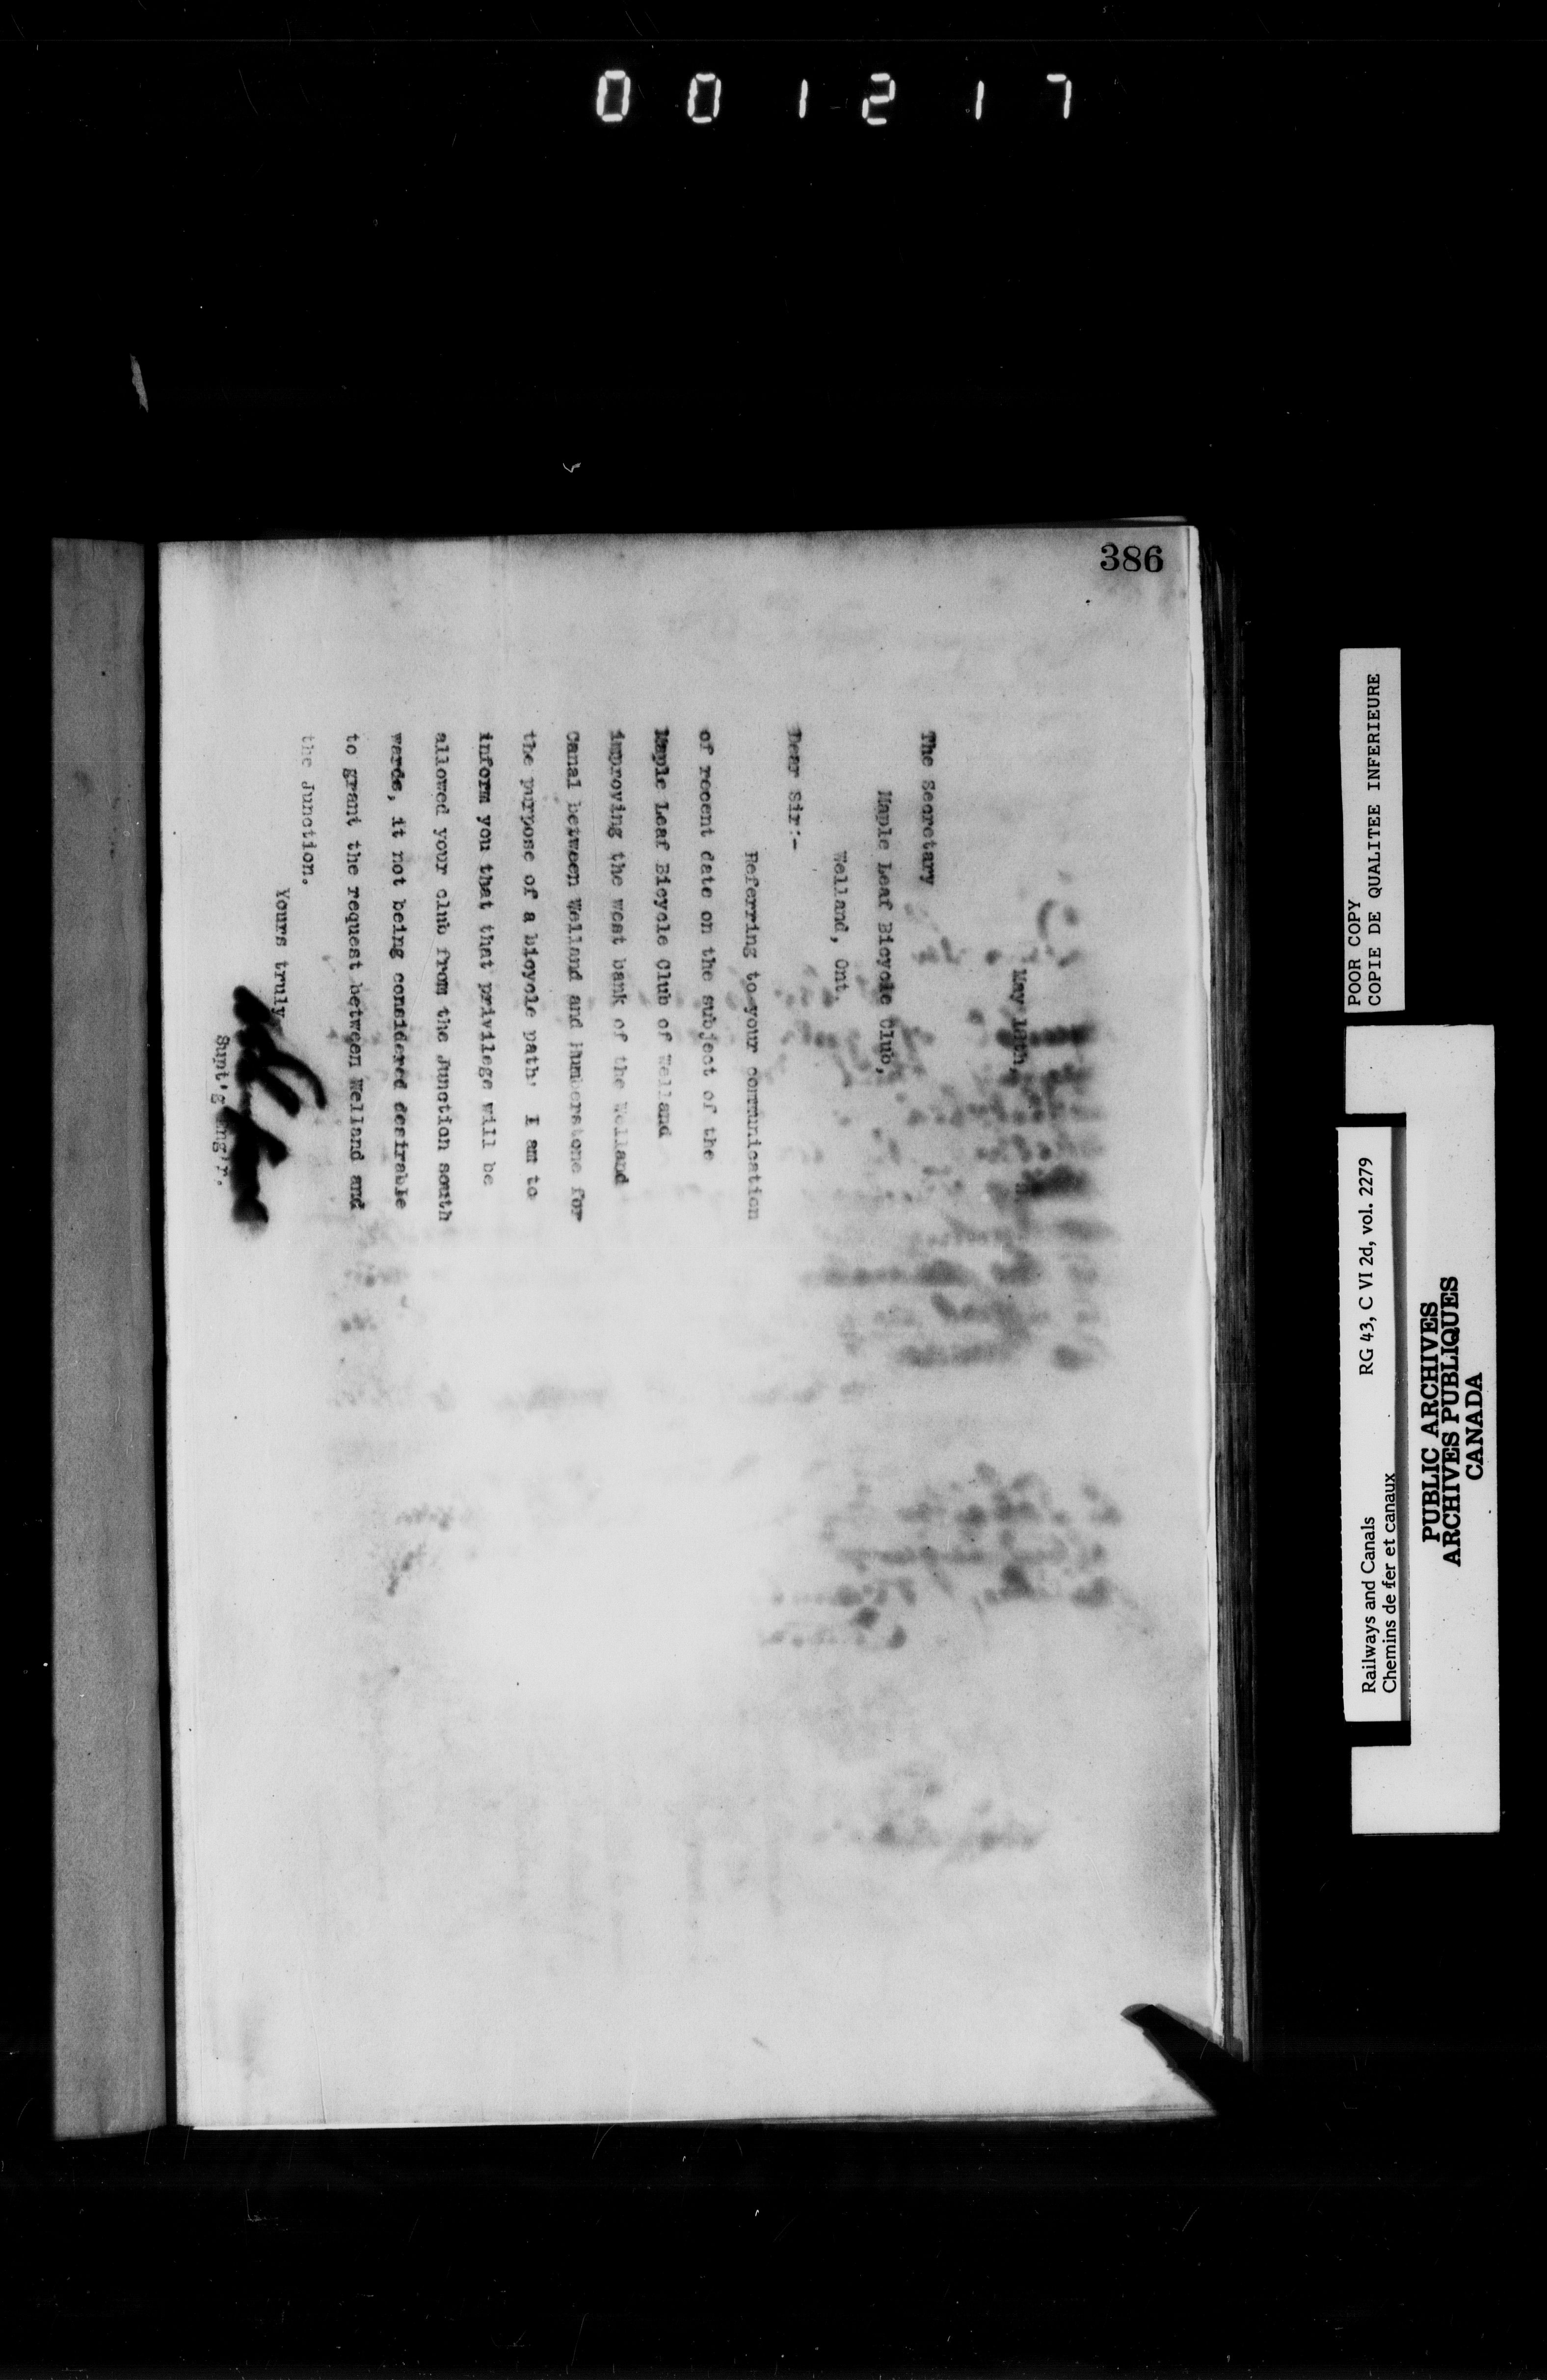 001217
386
May 18th,
The Secretary
Maple Leaf Bicycle Club,
Welland, Ont.
Dear Sir:-
Referring to your communication
of recent date on the subject of the
Maple Leaf Bicycle Club of Welland
improving the west bank of the Welland
Canal between Welland and Humberstone for
the purpose of a bicycle path: I am to
inform you that that privilege will be
allowed your club from the Junction south
wards, it not being considered desirable
to grant the request between Welland and
the Junction.
Yours truly
Supt'g Eng'r.
POOR COPY
COPIE DE QUALITEE INFERIEURE
Railways and Canals RG 43, C VI 2d, vol. 2279
Chemins de fer et canaux
PUBLIC ARCHIVES
ARCHIVES PUBLIQUES
CANADA